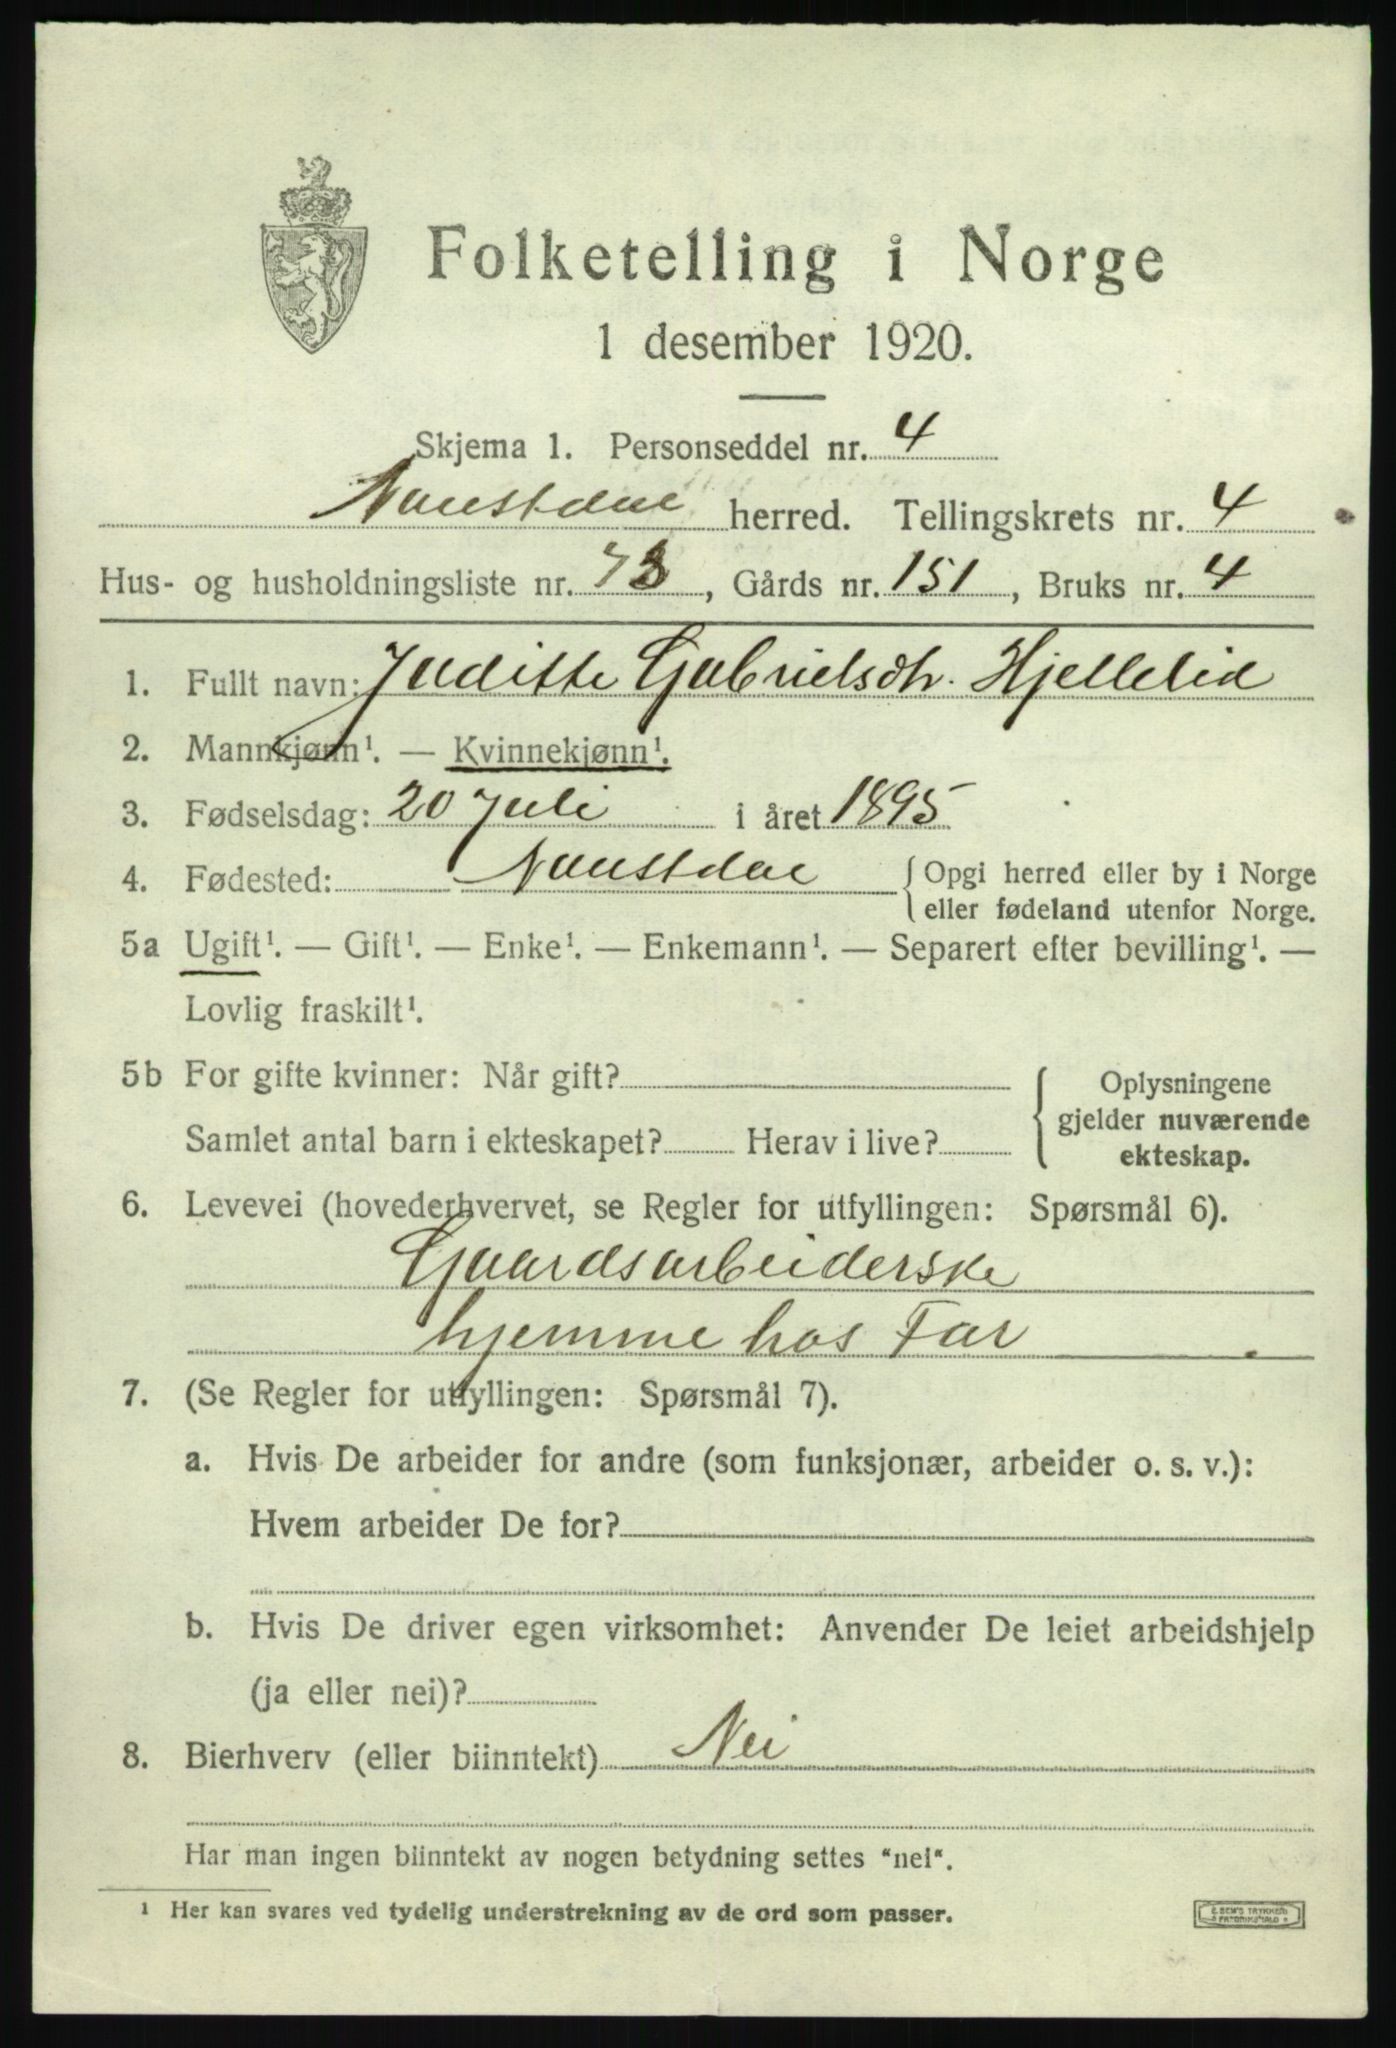 Folketelling i Norge
1 desember 1920.
Skjema 1. Personseddel nr. 4
Naustdal herred. Tellingskrets nr. 4
Hus- og husholdningsliste nr. 73, Gårds nr. 151, Bruks nr. 4
1. Fullt navn: Juditte Gabrielsdtr. Hjellelid
2. Mannkjønn¹. — Kvinnekjønn¹.
3. Fødselsdag: 20 Juli i året 1895
4. Fødested: Naustdal { Opgi herred eller by i Norge
eller fødeland utenfor Norge.
5a Ugift¹. — Gift¹. — Enke¹. — Enkemann¹. — Separert efter bevilling¹. —
Lovlig fraskilt¹.
5b For gifte kvinner: Når gift?
Samlet antal barn i ekteskapet? Herav i live? { Oplysningene
gjelder nuværende
ekteskap.
6. Levevei (hovederhvervet, se Regler for utfyllingen: Spørsmål 6).
Gaardsarbeiderske
hjemme hos Far
7. (Se Regler for utfyllingen: Spørsmål 7).
a. Hvis De arbeider for andre (som funksjonær, arbeider o. s. v.):
Hvem arbeider De for?
b. Hvis De driver egen virksomhet: Anvender De leiet arbeidshjelp
(ja eller nei)?
8. Bierhverv (eller biinntekt) Nei
Har man ingen biinntekt av nogen betydning settes "nei".
¹ Her kan svares ved tydelig understrekning av de ord som passer.